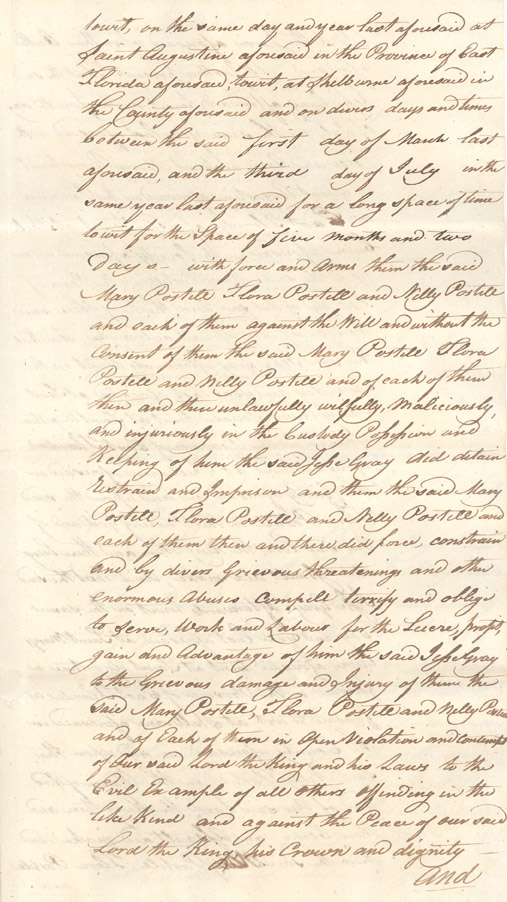 towit, on the same day and year last aforesaid at
Saint Augustine aforesaid in the Province of East
Florida aforesaid, towit, at Shelburne aforesaid in
the County aforesaid and on divers days and times
between the said first day of March last
aforesaid, and the third day of July in the
same year last aforesaid for a long space of time
towit for the Space of five months and two
Days – with force and Arms them the said
Mary Postell Flora Postell and Nelly Postell
and each of them against the Will and without the
Consent of them the said Mary Postell Flora
Postell and Nelly Postell and of each of them
then and there unlawfully wilfully, Maliciously,
and injuriously in the Custody Possession and
Keeping of him the said Jesse Gray did detain
restrain and Imprison and them the said Mary
Postell, Flora Postell and Nelly Postell and
each of them then and there did force, constrain
and by divers Grievous threatenings and other
enormous Abuses compell terrify and oblige
to serve, Work and Labour for the Lucre, profit,
gain and Advantage of him the said Jesse Gray
to the Grievous damage and Injury of them the
said Mary Postell, Flora Postell and Nelly Postell
and of Each of them in Open Violation and Contempt
of Our said Lord the King and his Laws to the
Evil Example of all others offending in the
like Kind and against the Peace of our said
Lord the King, his Crown and dignity –
And